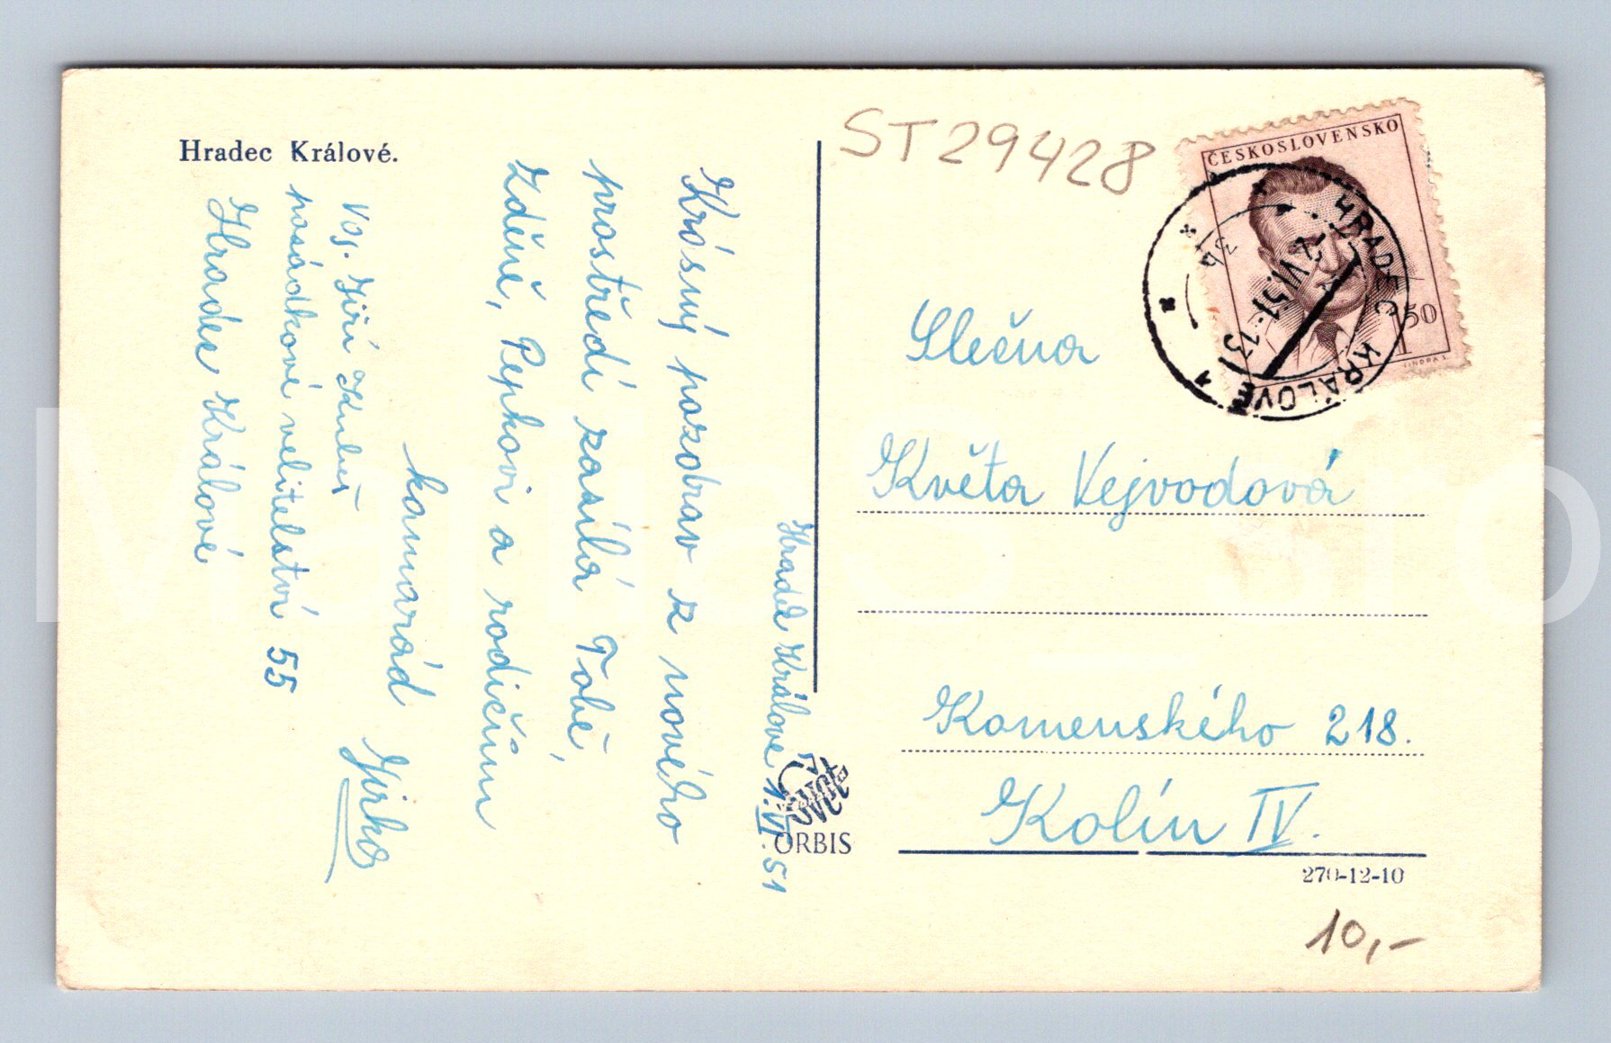 Hradec Králové.
Hradec Králové 1.VI.51
Krásný pozdrav z nového
prostředí zasílá Tobě,
Zdeně, Pepkovi a rodičům
kamarád Jirka
Voj. Jiří
posádkové velitelství 55
Hradec Králové
ST29428
ČESKOSLOVENSKO
1.50
HRADEC KRÁLOVÉ
2.VI.51
3b
Slečna
Květa Vejvodová
Komenského 218.
Kolín IV.
ORBIS
270-12-10
10,-